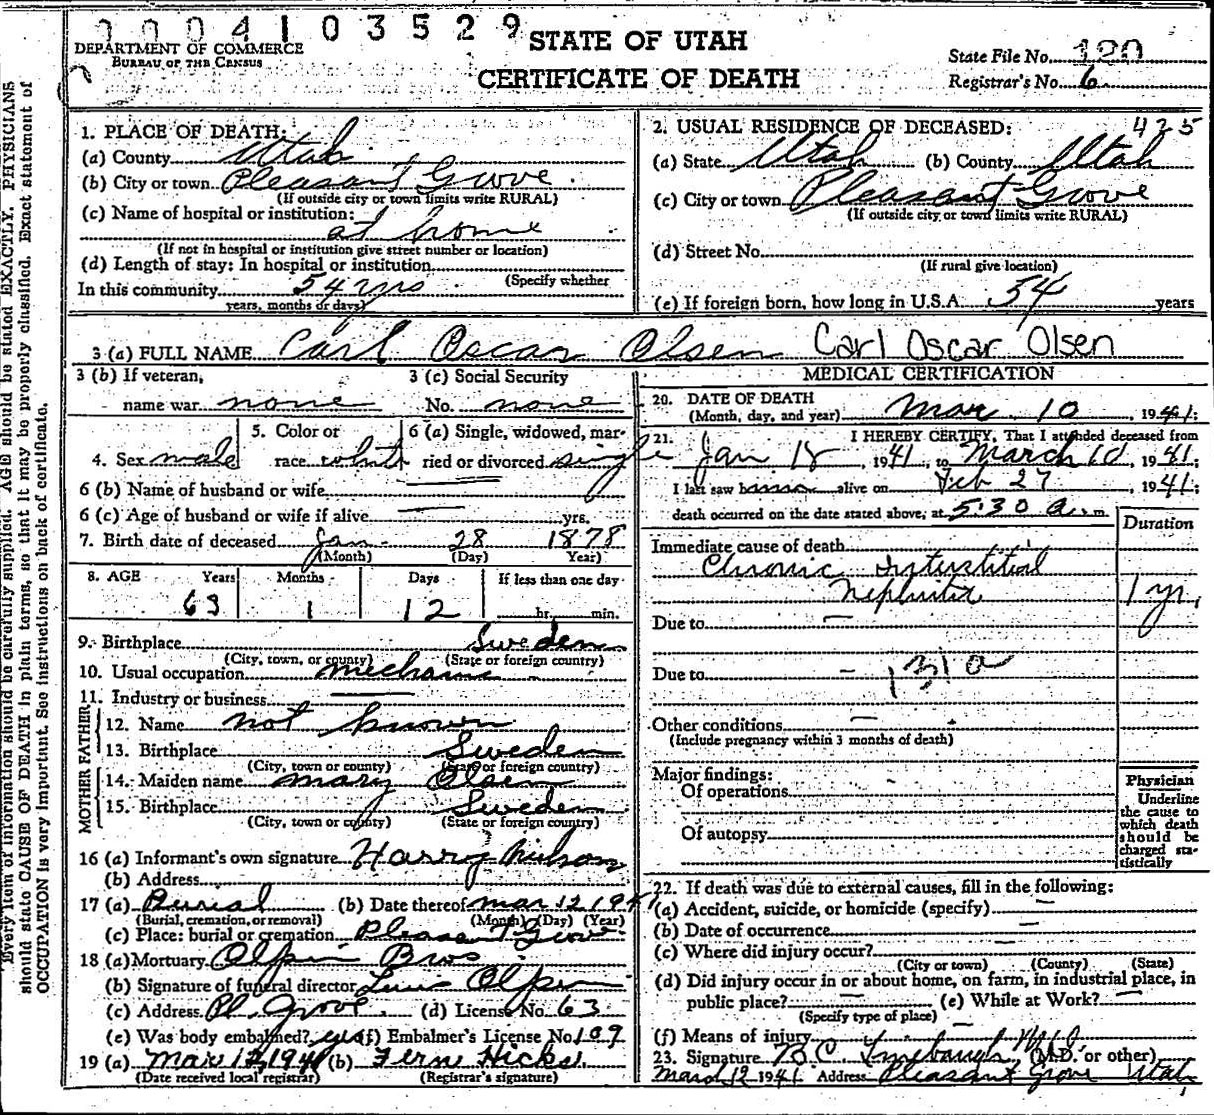 0004103529
DEPARTMENT OF COMMERCE
BUREAU OF THE CENSUS
STATE OF UTAH
CERTIFICATE OF DEATH
State File No. 120
Registrar's No. 6
1. PLACE OF DEATH:
(a) County Utah
(b) City or town Pleasant Grove
(If outside city or town limits write RURAL)
(c) Name of hospital or institution:
at home
(If not in hospital or institution give street number or location)
(d) Length of stay: In hospital or institution
(Specify whether
In this community 54 yrs
years, months or days)
2. USUAL RESIDENCE OF DECEASED: 425
(a) State Utah (b) County Utah
(c) City or town Pleasant Grove
(If outside city or town limits write RURAL)
(d) Street No.
(If rural give location)
(e) If foreign born, how long in U.S.A. 54 years
3 (a) FULL NAME Carl Oscar Olsen Carl Oscar Olsen
3 (b) If veteran,
name war none
3 (c) Social Security
No. none
4. Sex male
5. Color or
race white
6 (a) Single, widowed, mar-
ried or divorced single
6 (b) Name of husband or wife
6 (c) Age of husband or wife if alive yrs.
7. Birth date of deceased Jan. 28 1878
(Month) (Day) Year)
8. AGE Years Months Days If less than one day
63 1 12 hr. min.
9. Birthplace Sweden
(City, town, or county) (State or foreign country)
10. Usual occupation mechanic
11. Industry or business
FATHER
12. Name not known
13. Birthplace Sweden
(City, town or county) (State or foreign country)
MOTHER
14. Maiden name Mary Olsen
15. Birthplace Sweden
(City, town or county) (State or foreign country)
16 (a) Informant's own signature Harry
(b) Address
17 (a) Burial (b) Date thereof Mar 12 1941
(Burial, cremation, or removal) (Month) (Day) (Year)
(c) Place: burial or cremation Pleasant Grove
18 (a) Mortuary Olpin Bros
(b) Signature of funeral director Olpin
(c) Address Pl. Grove. (d) License No. 63
(e) Was body embalmed? yes (f) Embalmer's License No. 109
19 (a) Mar 12, 1941 (b) Fern Hicks.
(Date received local registrar) (Registrar's signature)
MEDICAL CERTIFICATION
20. DATE OF DEATH
(Month, day, and year) Mar. 10, 1941;
21. I HEREBY CERTIFY, That I attended deceased from
Jan 18, 1941, to March 10, 1941;
I last saw him alive on Feb 27, 1941;
death occurred on the date stated above, at 5:30 a. m.
Duration
Immediate cause of death
Chronic Interstitial
Nephritis 1 yr.
Due to —
Due to — 131a
Other conditions —
(Include pregnancy within 3 months of death)
Major findings:
Of operations
Of autopsy
Physician
Underline
the cause to
which death
should be
charged sta-
tistically
22. If death was due to external causes, fill in the following:
(a) Accident, suicide, or homicide (specify) —
(b) Date of occurrence —
(c) Where did injury occur? —
(City or town) (County) (State)
(d) Did injury occur in or about home, on farm, in industrial place, in
public place? — (e) While at Work? —
(Specify type of place)
(f) Means of injury —
23. Signature B C Linebaugh M.D. (M.D. or other)
March 12 1941 Address Pleasant Grove Utah
Every item of information should be carefully supplied. AGE should be stated EXACTLY. PHYSICIANS
should state CAUSE OF DEATH in plain terms, so that it may be properly classified. Exact statement of
OCCUPATION is very important. See instructions on back of certificate.